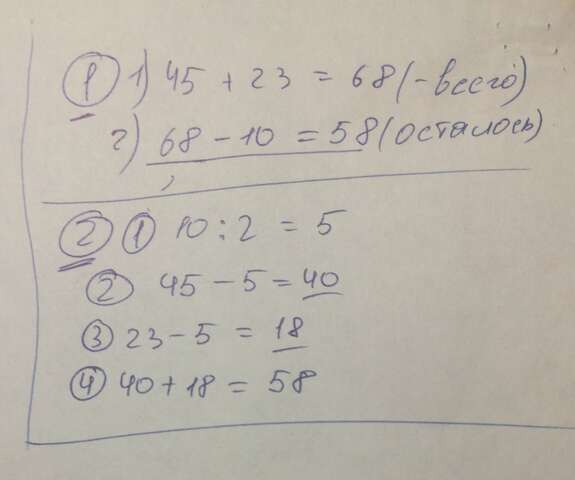 1 1) 45 + 23 = 68 (-всего)
2) 68 - 10 = 58 (осталось)
2 1 10 : 2 = 5
2 45 - 5 = 40
3 23 - 5 = 18
4 40 + 18 = 58